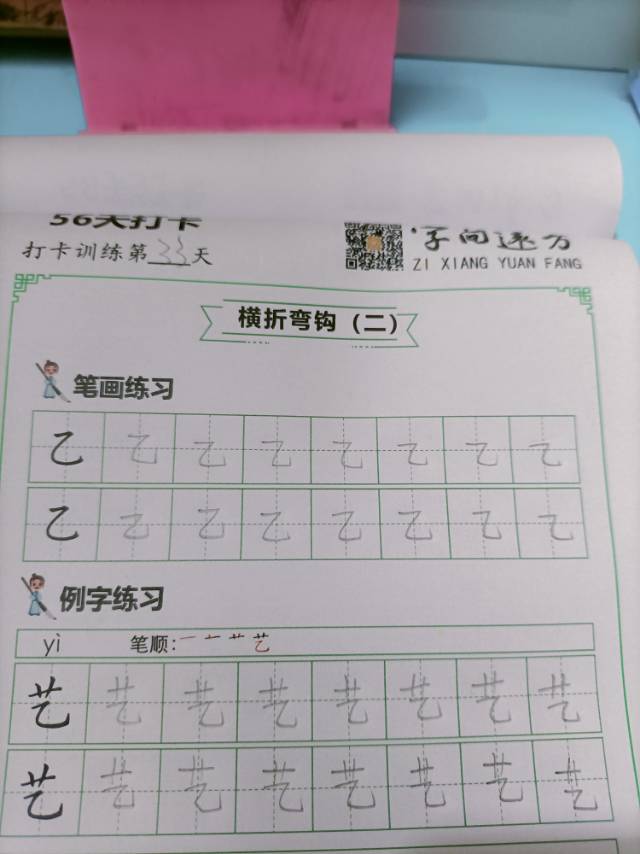 56天打卡
打卡训练第33天
字间速方
ZI XIANG YUAN FANG
横折弯钩（二）
笔画练习
乙 乙 乙 乙 乙 乙 乙 乙
乙 乙 乙 乙 乙 乙 乙 乙
例字练习
yì 笔顺:一 十 艹 艺
艺 艺 艺 艺 艺 艺 艺 艺
艺 艺 艺 艺 艺 艺 艺 艺